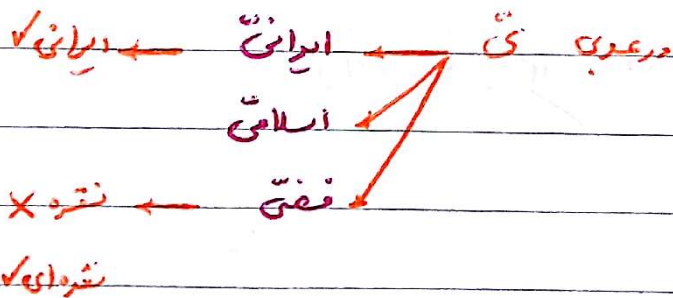 در عربی یّ ← ایرانیّ ← ایرانی ✓
اسلامیّ
فضیّ ← نقره ×
نقره‌ای ✓